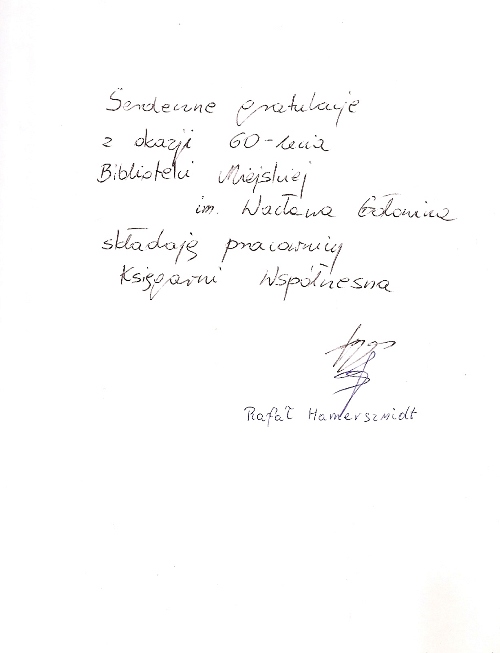 Serdeczne gratulacje
z okazji 60-lecia
Biblioteki Miejskiej
im. Wacława Gołowicza
składają pracownicy
Księgarni Współczesna
Rafał Hamerszmidt